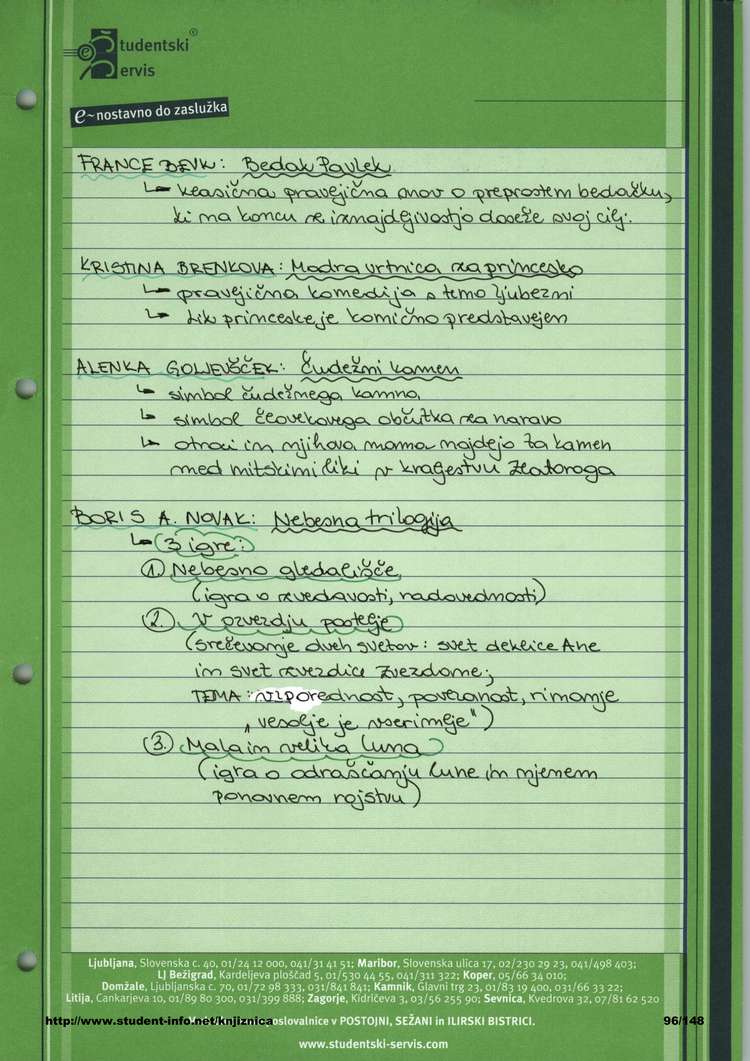 Študentski®
Servis
e~nostavno do zaslužka
FRANCE BEVK: Bedak Pavlek
↳ klasična pravljična snov o preprostem bedačku,
ki na koncu z iznajdljivostjo doseže svoj cilj.
KRISTINA BRENKOVA: Modra vrtnica za princesko
↳ pravljična komedija s temo ljubezni
↳ lik princeske je komično predstavljen
ALENKA GOLJEVŠČEK: Čudežni kamen
↳ simbol čudežnega kamna
↳ simbol človekovega občutka za naravo
↳ otroci in njihova mama najdejo ta kamen
med mitskimi liki v kraljestvu Zlatoroga
BORIS A. NOVAK: Nebesna trilogija
↳ 3 igre:
1. Nebesno gledališče
(igra o zvedavosti, radovednosti)
2. V ozvezdju postelje
(srečevanje dveh svetov: svet deklice Ane
in svet zvezdice Zvezdane;
TEMA: vzporednost, povezanost, rimanje
„vesolje je vserimje")
3. Mala in velika luna
(igra o odraščanju lune in njenem
ponovnem rojstvu)
Ljubljana, Slovenska c. 40, 01/24 12 000, 041/31 41 51; Maribor, Slovenska ulica 17, 02/230 29 23, 041/498 403;
LJ Bežigrad, Kardeljeva ploščad 5, 01/530 44 55, 041/311 322; Koper, 05/66 34 010;
Domžale, Ljubljanska c. 70, 01/72 98 333, 031/841 841; Kamnik, Glavni trg 23, 01/83 19 400, 031/66 33 22;
Litija, Cankarjeva 10, 01/89 80 300, 031/399 888; Zagorje, Kidričeva 3, 03/56 255 90; Sevnica, Kvedrova 32, 07/81 62 520
http://www.student-info.net/knjiznica poslovalnice v POSTOJNI, SEŽANI in ILIRSKI BISTRICI. 96/148
www.studentski-servis.com